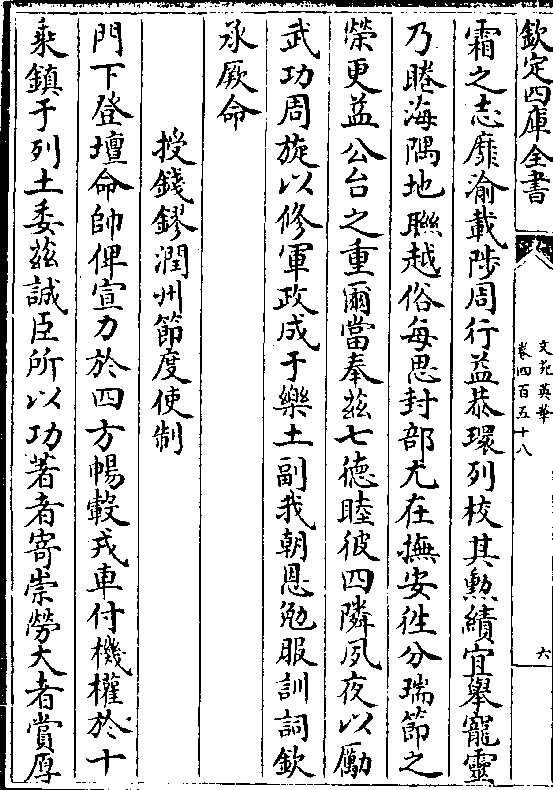 欽定四庫全書
文苑英華
卷四百五十八
六
霜之志靡渝載陟周行益恭環列校其勲績宜舉寵靈
乃睠海隅地聯越俗每思封部尤在撫安徃分瑞節之
榮更益公台之重爾當奉兹七德睦彼四隣夙夜以勵
武功周旋以修軍政成于樂土副我朝恩勉服訓詞欽
承厥命
授錢鏐潤州節度使制
門下登壇命帥俾宣力於四方暢轂戎車付機權於十
乘鎮于列土委兹誠臣所以功著者寄崇勞大者賞厚